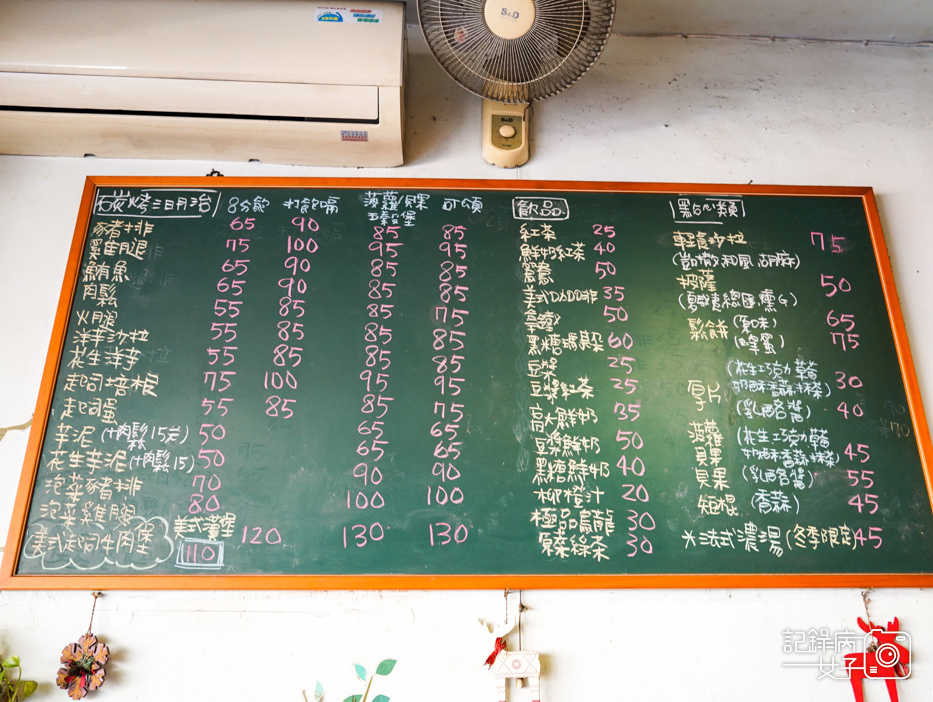 S&D
S&D
碳烤三明治 8分飽 打飽嗝 菠蘿/貝果 可頌
瑪芬堡
豬排 65 90 85 85
雞腿 75 100 95 95
鮪魚 65 90 85 85
肉鬆 65 90 85 85
火腿 55 85 85 75
洋芋沙拉 55 85 85 85
花生洋芋 55 85 85 85
起司培根 75 100 95 95
起司蛋 55 85 85 75
芋泥(+肉鬆15元) 50 65 65
花生芋泥(+肉鬆15) 50 65 65
泡菜豬排 70 90 90
泡菜雞腿 80 100 100
美式起司牛肉堡 美式漢堡 110 120 130 130
飲品
紅茶 25
鮮奶紅茶 40
鴛鴦 50
美式咖啡 35
拿鐵 50
黑糖瑪奇朵 60
豆漿 25
豆漿紅茶 25
高大鮮奶 35
豆漿鮮奶 50
黑糖鮮奶 40
柳橙汁 20
極品烏龍 30
綠茶 30
點心類
輕食沙拉 75
(凱撒,和風,胡麻)
披薩 50
(夏威夷,總匯,燻G)
鬆餅 (原味) 65
(蜂蜜) 75
厚片 (花生 巧克力 草莓
奶酥 香蒜 抹茶) 30
(乳酪 醬) 40
菠蘿 (花生 巧克力 草莓
貝果 奶酥 香蒜 抹茶) 45
貝果 (乳酪 醬) 55
短棍 (香蒜) 45
法式濃湯(冬季限定) 45
記錄病女子